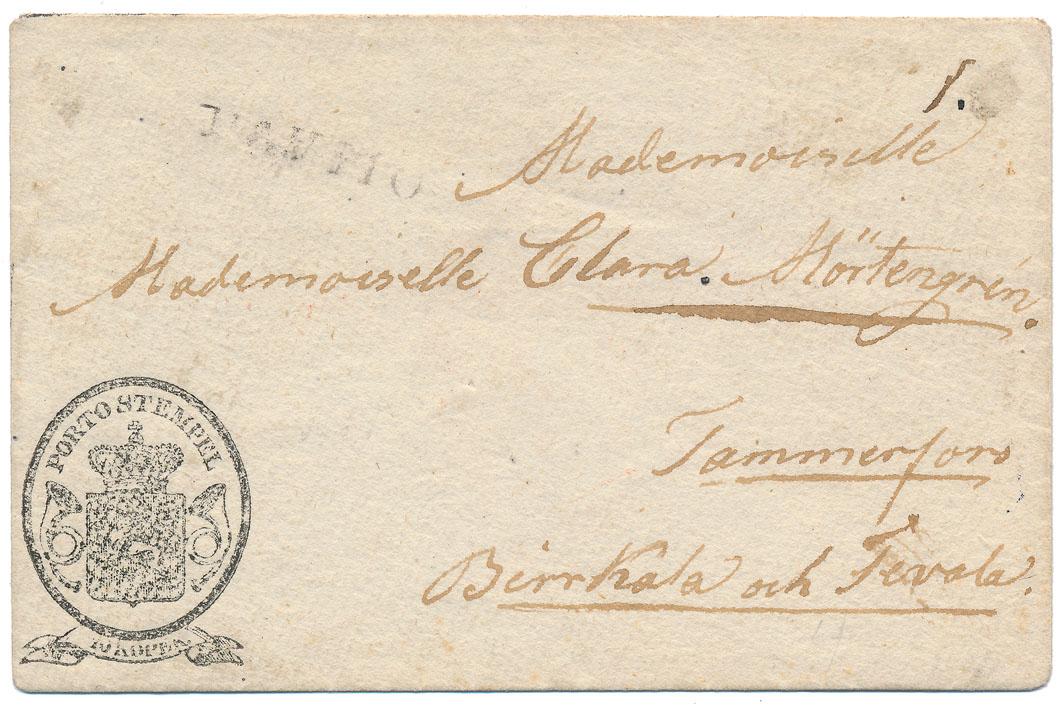 1.
Mademoiselle
Mademoiselle Clara. Mörtengrén.
Tammerfors
Birrkala och Tevala.
PORTO STEMPEL
10 KOPEK